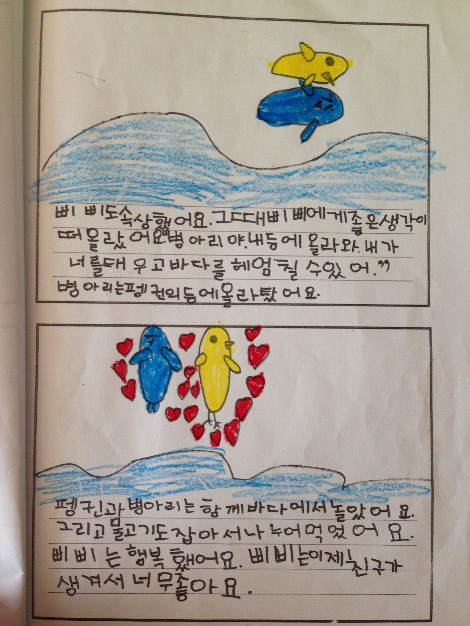 삐삐도속상했어요. 그때삐삐에게좋은생각이
떠올랐어요. "병아리야내등에 올라와. 내가
너를태우고바다를헤엄칠 수있어."
병아리는펭귄의등에올라탔어요.
펭귄과병아리는함께바다에서놀았어요.
그리고물고기도잡아서나누어먹었어요.
삐삐는행복했어요. 삐삐는이제친구가
생겨서너무좋아요.